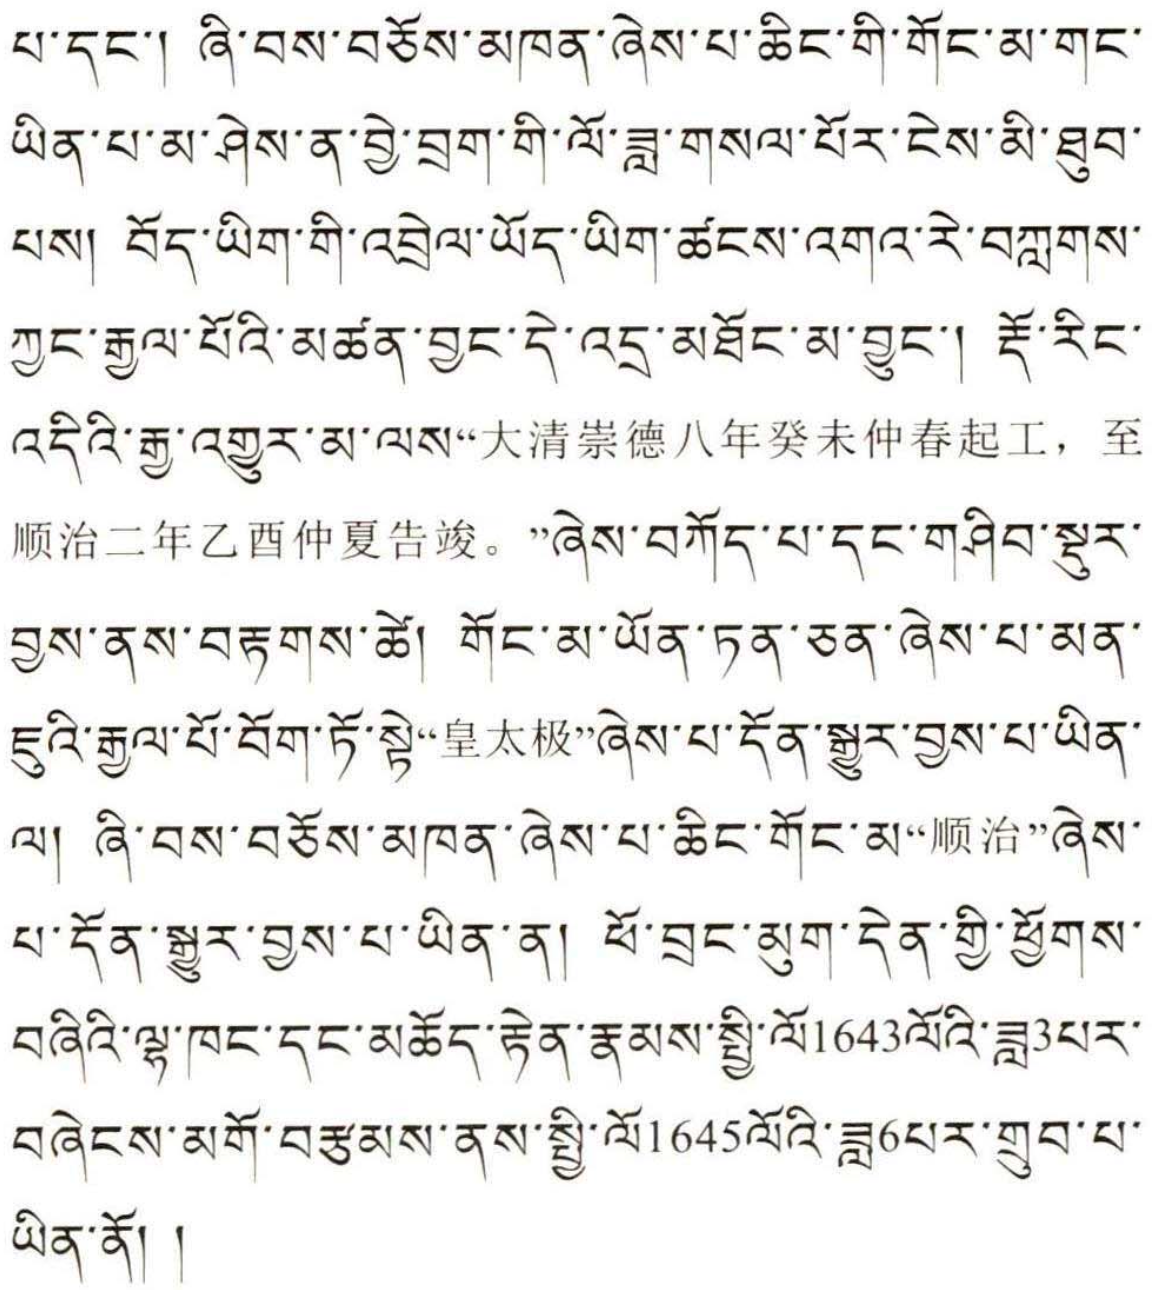 པ་དང་། ཞི་བས་བཅོས་མཁན་ཞེས་པ་ཆིང་གི་གོང་མ་གང་
ཡིན་པ་མ་ཤེས་ན་བྱེ་བྲག་གི་ལོ་ཟླ་གསལ་པོར་ངེས་མི་ཐུབ་
པས། བོད་ཡིག་གི་འབྲེལ་ཡོད་ཡིག་ཚངས་འགའ་རེ་བཀླགས་
ཀྱང་རྒྱལ་པོའི་མཚན་བྱང་དེ་འདྲ་མཐོང་མ་བྱུང་། རྡོ་རིང་
འདིའི་རྒྱ་འགྱུར་མ་ལས“大清崇德八年癸未仲春起工，至
顺治二年乙酉仲夏告竣。”ཞེས་བཀོད་པ་དང་གཤིབ་སྡུར་
བྱས་ནས་བརྟགས་ཚེ། གོང་མ་ཡོན་ཏན་ཅན་ཞེས་པ་མན་
ཇུའི་རྒྱལ་པོ་བོག་ཏོ་སྟེ“皇太极”ཞེས་པ་དོན་སྒྱུར་བྱས་པ་ཡིན་
ལ། ཞི་བས་བཅོས་མཁན་ཞེས་པ་ཆིང་གོང་མ“顺治”ཞེས་
པ་དོན་སྒྱུར་བྱས་པ་ཡིན་ན། ཕོ་བྲང་མུག་དེན་གྱི་ཕྱོགས་
བཞིའི་ལྷ་ཁང་དང་མཆོད་རྟེན་རྣམས་སྤྱི་ལོ1643ལོའི་ཟླ3པར་
བཞེངས་མགོ་བརྩམས་ནས་སྤྱི་ལོ1645ལོའི་ཟླ6པར་གྲུབ་པ་
ཡིན་ནོ། །